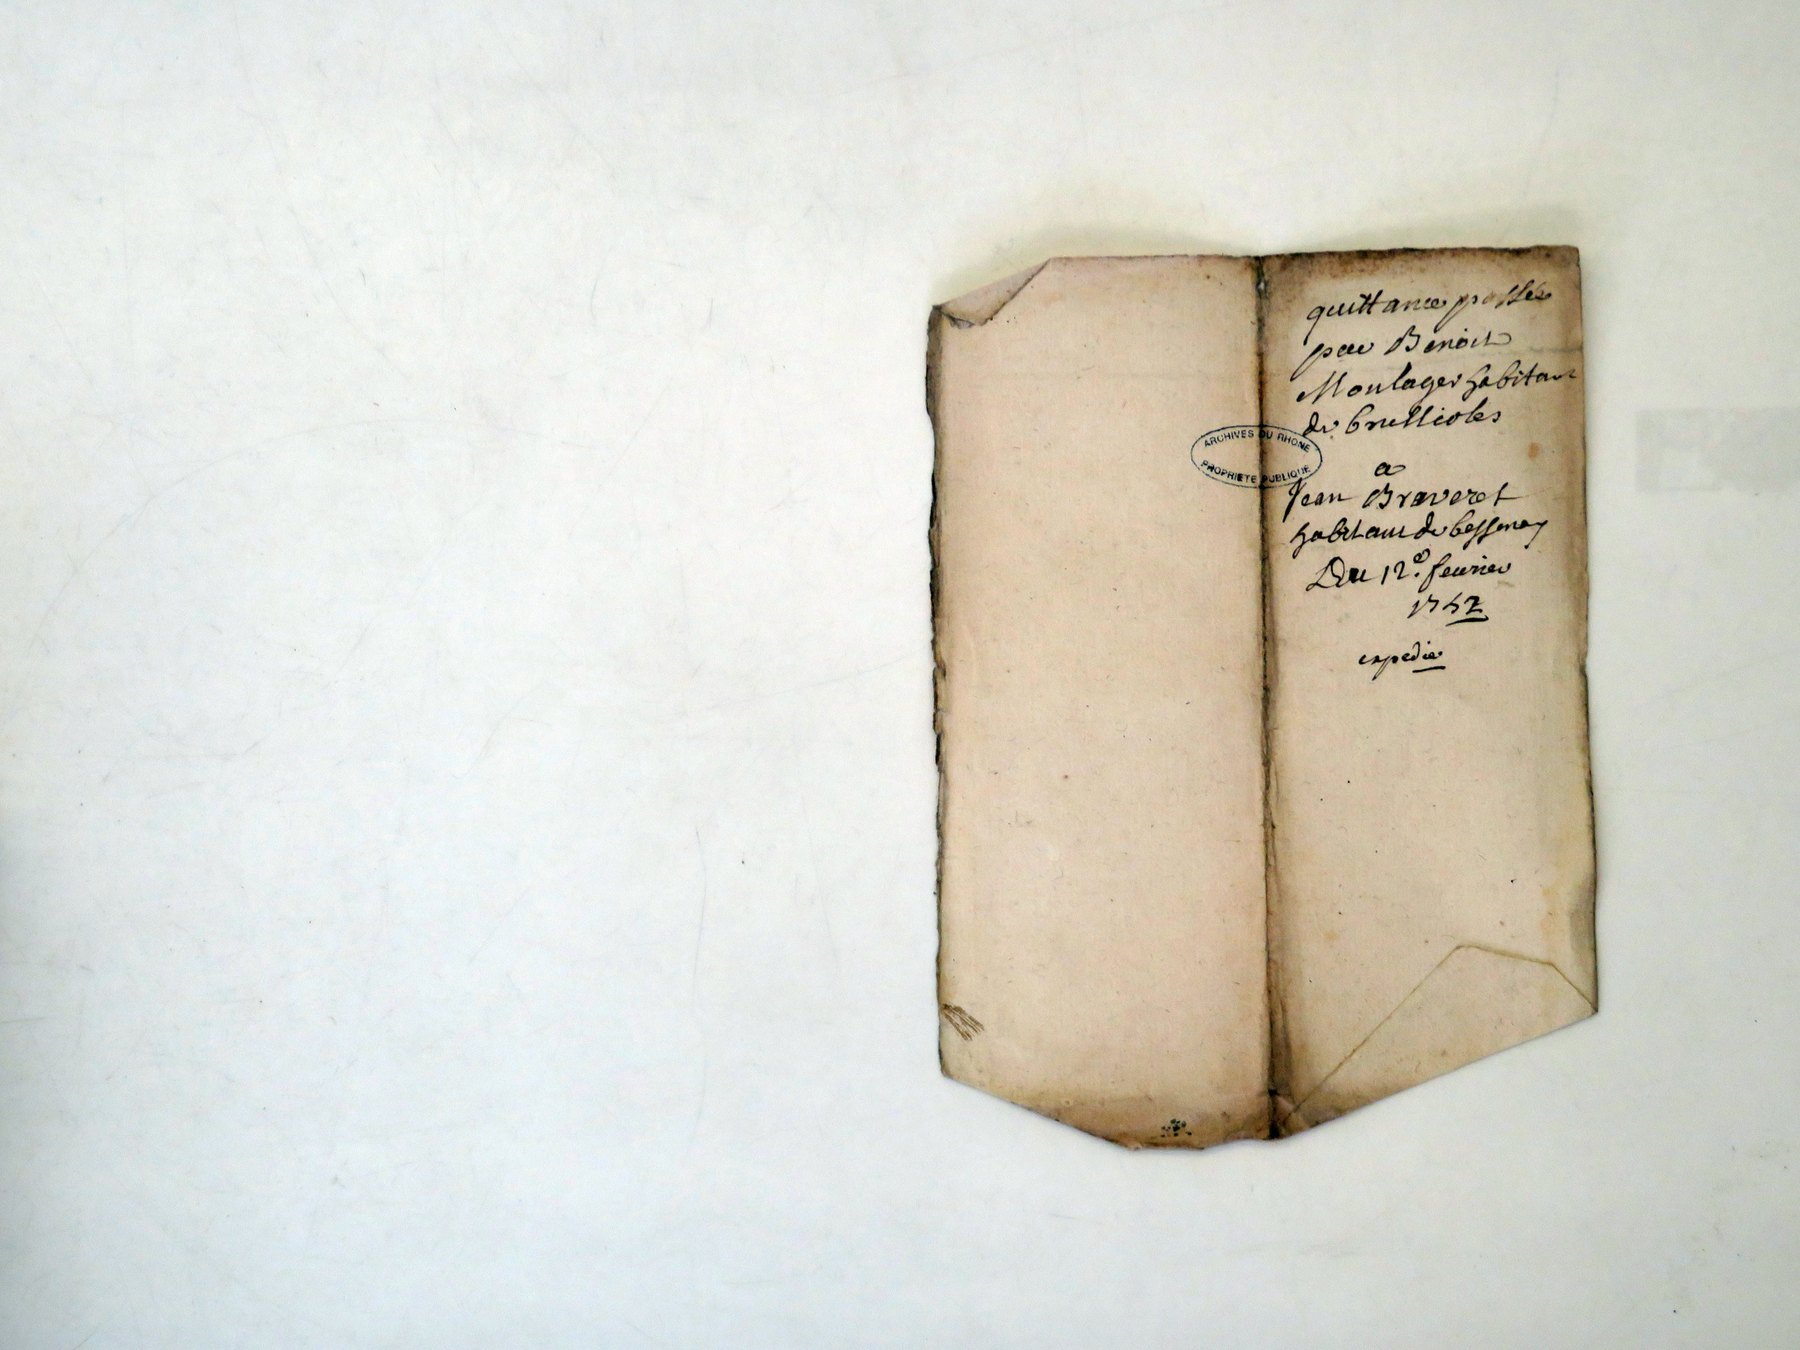 quittance passée
par Benoit
Moulager habitant
de brullioles
ARCHIVES DU RHONE
PROPRIETE PUBLIQUE
a
Jean Braveret
habitant de bessenay
Du 12e. fevrier
expedie